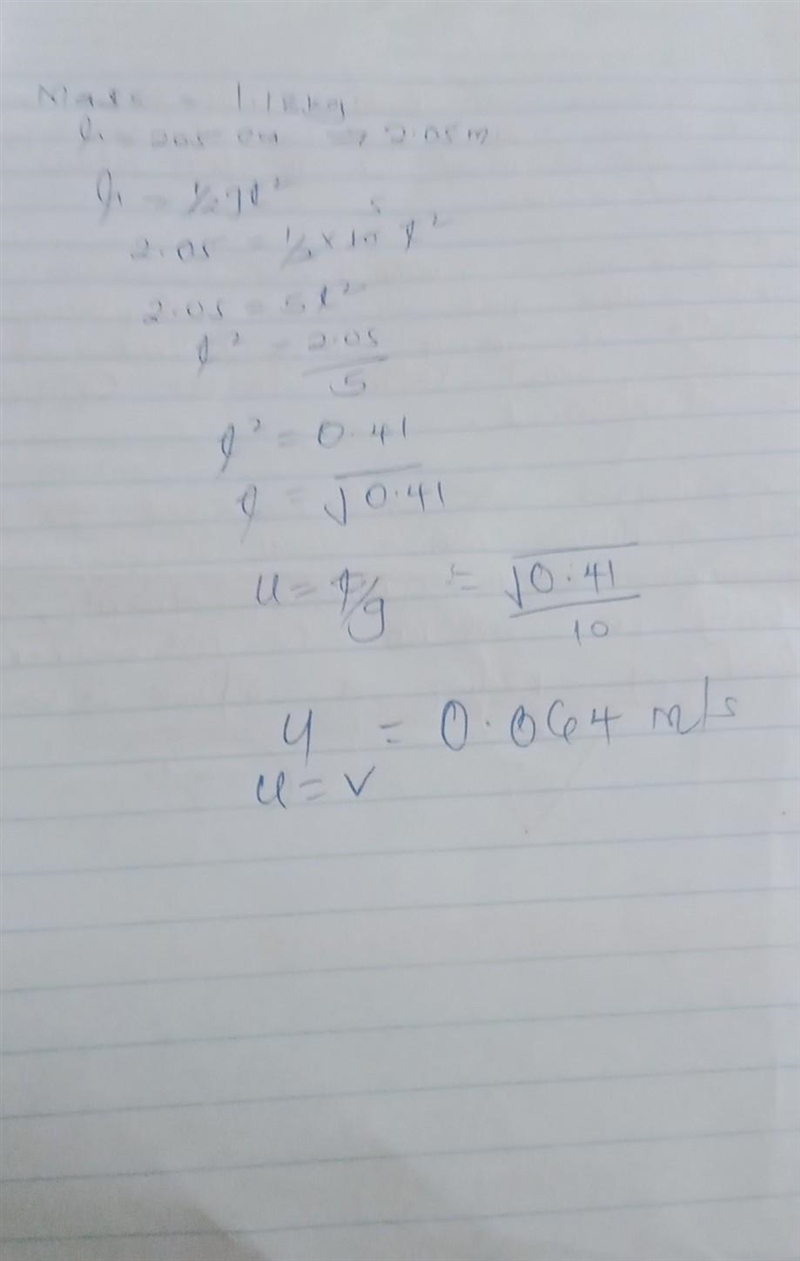 Mass = 1.18kg
h = 205 cm → 2.05m
h = ½gt²
2.05 = ½ × 10 t²
5
2.05 = 5t²
t² = 2.05
5
t² = 0.41
t = √0.41
u = t/g = √0.41
10
u = 0.064 m/s
u = v